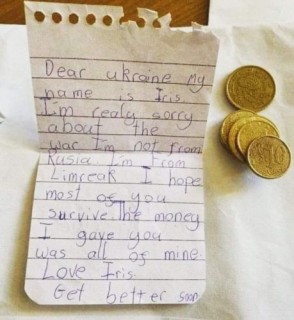 Dear ukraine My
name is Iris
I'm realy sorry
about the
war I'm not from
Rusia I'm From
Limreak I hope
most of you
survive. The money
I gave you
was all of mine.
Love Iris.
Get better soon